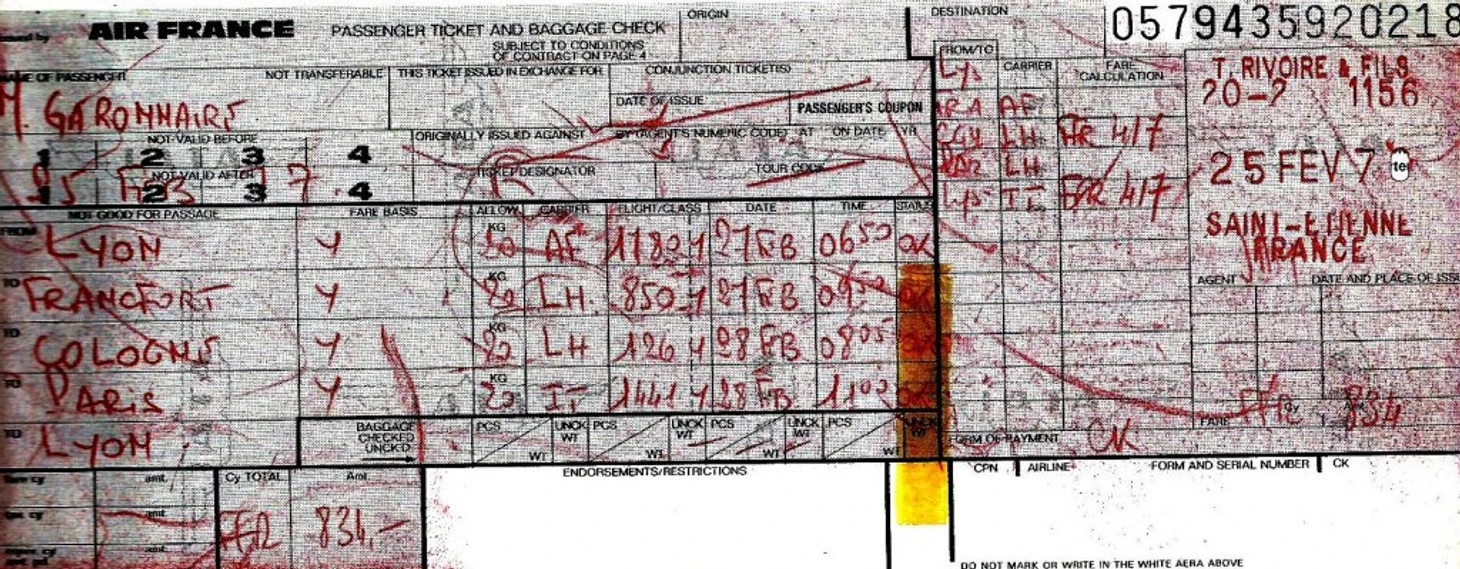 AIR FRANCE PASSENGER TICKET AND BAGGAGE CHECK
SUBJECT TO CONDITIONS
OF CONTRACT ON PAGE 4
ORIGIN
DESTINATION
0579435920218
NAME OF PASSENGER NOT TRANSFERABLE
THIS TICKET ISSUED IN EXCHANGE FOR
CONJUNCTION TICKET(S)
FROM/TO CARRIER FARE CALCULATION
DATE OF ISSUE PASSENGER'S COUPON
T. RIVOIRE & FILS
20-2 1156
25 FEV 7
SAINT-ETIENNE
FRANCE
NOT VALID BEFORE
ORIGINALLY ISSUED AGAINST
BY (AGENT'S NUMERIC CODE) AT ON DATE YR
1 2 3 4
NOT VALID AFTER
TICKET DESIGNATOR
TOUR CODE
1 2 3 4
Lys
FRA AF
CGN LH FFR 417
PAR LH
Lys IT FFR 417
NOT GOOD FOR PASSAGE FARE BASIS ALLOW CARRIER FLIGHT/CLASS DATE TIME STATUS
FROM LYON Y KG 20 AF 1180 Y 27 FEB 0650 OK
TO FRANCFORT Y KG 20 LH 850 Y 27 FEB OK
TO COLOGNE Y KG 20 LH 126 Y 28 FEB 0805
TO PARIS Y KG 20 IT 1441 Y 28 FEB 1102
TO LYON
BAGGAGE
CHECKED
UNCKED
PCS WT UNCK WT PCS WT UNCK WT PCS WT UNCK WT PCS WT UNCK WT
AGENT DATE AND PLACE OF ISSUE
FARE FFR 834
FORM OF PAYMENT
amt. Cy TOTAL Amt.
FFR 834,-
amt.
ENDORSEMENTS/RESTRICTIONS
CPN AIRLINE FORM AND SERIAL NUMBER CK
DO NOT MARK OR WRITE IN THE WHITE AERA ABOVE